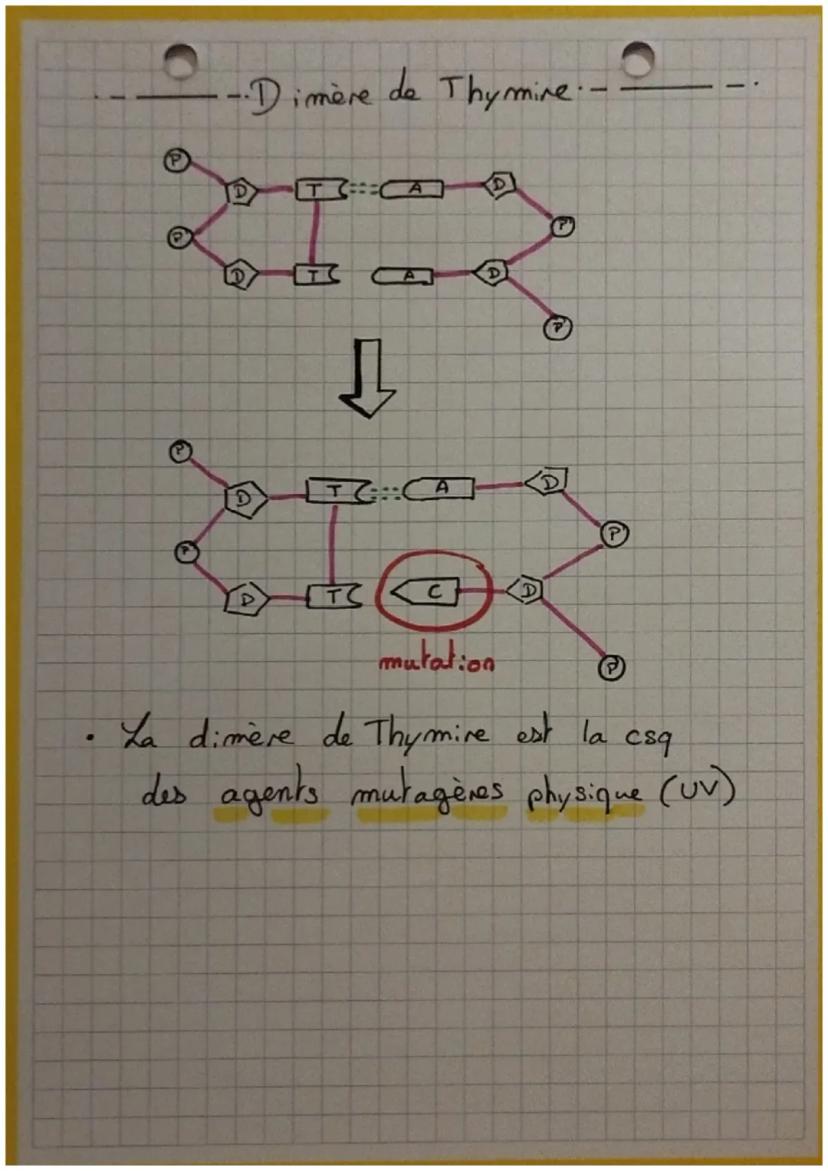 Dimère de Thymine
P
D T A D
P P
D T A D
P
P
D T A D
P P
D T C D
mutation
P
• La dimère de Thymine est la csq
des agents mutagènes physique (UV)